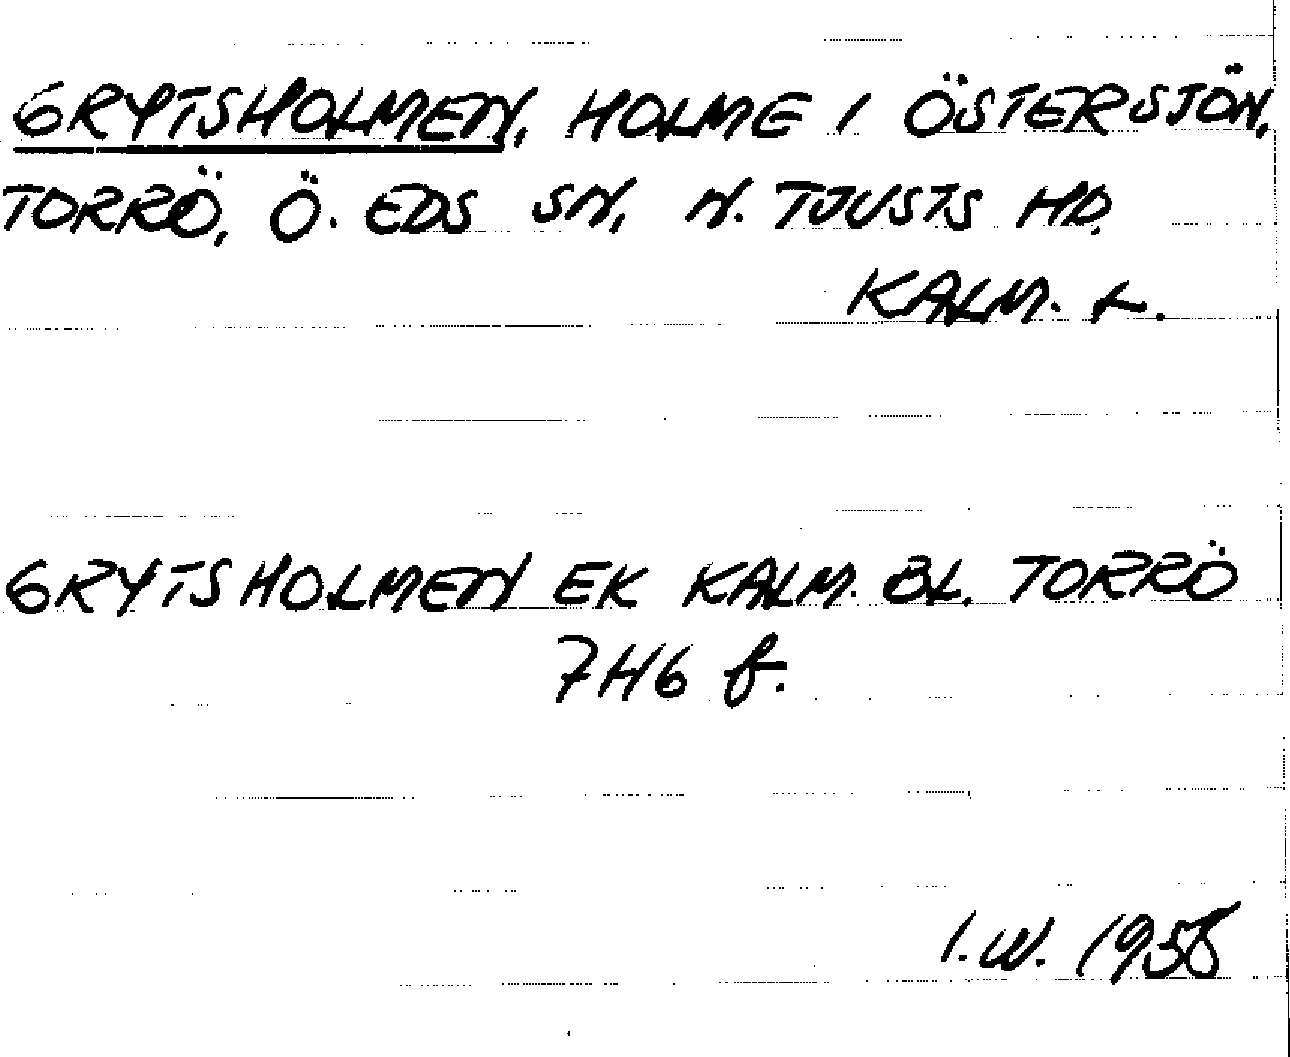 GRYTSHOLMEN, HOLME I ÖSTERSJÖN,
TORRÖ, Ö. EDS SN, N. TJUSTS HD,
KALM. L.
GRYTSHOLMEN EK KALM. BL. TORRÖ
7H6 f.
I.W. 1958